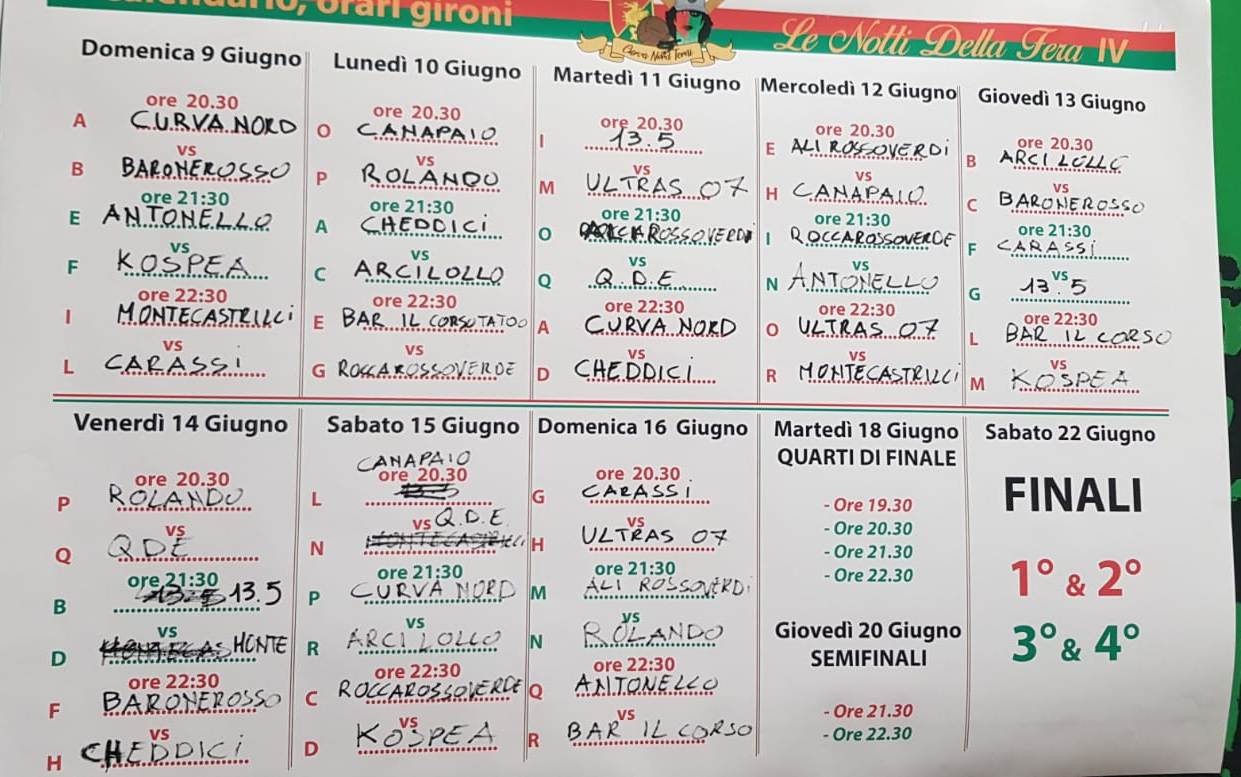 orari gironi
Le Notti Della Fera IV
Domenica 9 Giugno
A ore 20.30 CURVA NORD
vs
B BARONEROSSO
ore 21:30
E ANTONELLO
vs
F KOSPEA
ore 22:30
I MONTECASTRILLI
vs
L CARASSI
Lunedì 10 Giugno
ore 20.30
O CANAPAIO
vs
P ROLANDO
ore 21:30
A CHEDDICI
vs
C ARCILOLLO
ore 22:30
E BAR IL CORSO TATOO
vs
G ROCCAROSSOVERDE
Martedì 11 Giugno
ore 20.30
I 13.5
vs
M ULTRAS 07
ore 21:30
O ROSSOVERDI
vs
Q Q.D.E.
ore 22:30
A CURVA NORD
vs
D CHEDDICI
Mercoledì 12 Giugno
ore 20.30
E ALI ROSSOVERDI
vs
H CANAPAIO
ore 21:30
I ROCCAROSSOVERDE
vs
N ANTONELLO
ore 22:30
O ULTRAS 07
vs
R MONTECASTRILLI
Giovedì 13 Giugno
ore 20.30
B ARCILOLLO
vs
C BARONEROSSO
ore 21:30
F CARASSI
vs
G 13.5
ore 22:30
L BAR IL CORSO
vs
M KOSPEA
Venerdì 14 Giugno
ore 20.30
P ROLANDO
vs
Q QDE
ore 21:30
B 13.5
vs
D MONTE
ore 22:30
F BARONEROSSO
vs
H CHEDDICI
Sabato 15 Giugno
CANAPAIO
ore 20.30
L
vs Q.D.E.
N
ore 21:30
P CURVA NORD
vs
R ARCILOLLO
ore 22:30
C ROCCAROSSOVERDE
vs
D KOSPEA
Domenica 16 Giugno
ore 20.30
G CARASSI
vs
H ULTRAS 07
ore 21:30
M ALI ROSSOVERDI
vs
N ROLANDO
ore 22:30
Q ANTONELLO
vs
R BAR IL CORSO
Martedì 18 Giugno
QUARTI DI FINALE
- Ore 19.30
- Ore 20.30
- Ore 21.30
- Ore 22.30
Giovedì 20 Giugno
SEMIFINALI
- Ore 21.30
- Ore 22.30
Sabato 22 Giugno
FINALI
1° & 2°
3° & 4°